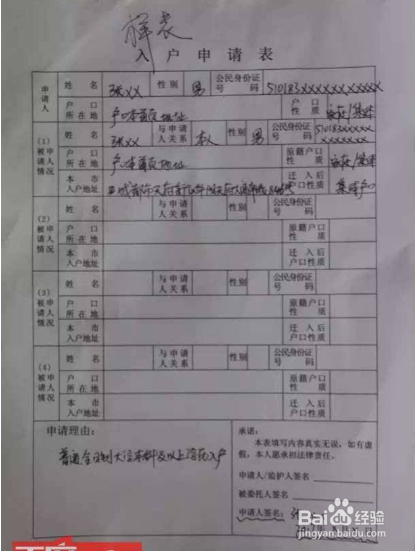 样表
入户申请表
申请人 姓名 张XX 性别 男 公民身份证号码 510183XXXXXXXXXXX
户口所在地 户口本首页地址 户口性质 家庭/集体
(1) 被申请人情况 姓名 张XX 与申请人关系 本人 性别 男 公民身份证号码 510183XXXXXXXXXXX
户口所在地 户口本首页地址 原籍户口性质 家庭/集体
本市入户地址 迁入后户口性质 集体户口
(2) 被申请人情况 姓名 与申请人关系 性别 公民身份证号码
户口所在地 原籍户口性质
本市入户地址 迁入后户口性质
(3) 被申请人情况 姓名 与申请人关系 性别 公民身份证号码
户口所在地 原籍户口性质
本市入户地址 迁入后户口性质
(4) 被申请人情况 姓名 与申请人关系 性别 公民身份证号码
户口所在地 原籍户口性质
本市入户地址 迁入后户口性质
申请理由:
普通全日制大学本科及以上学历入户
承诺:
本表填写内容真实无误,如有虚
假,本人愿承担法律责任。
申请人/监护人签名:
被委托人签名:
申请人签名:
Bai 百度经验